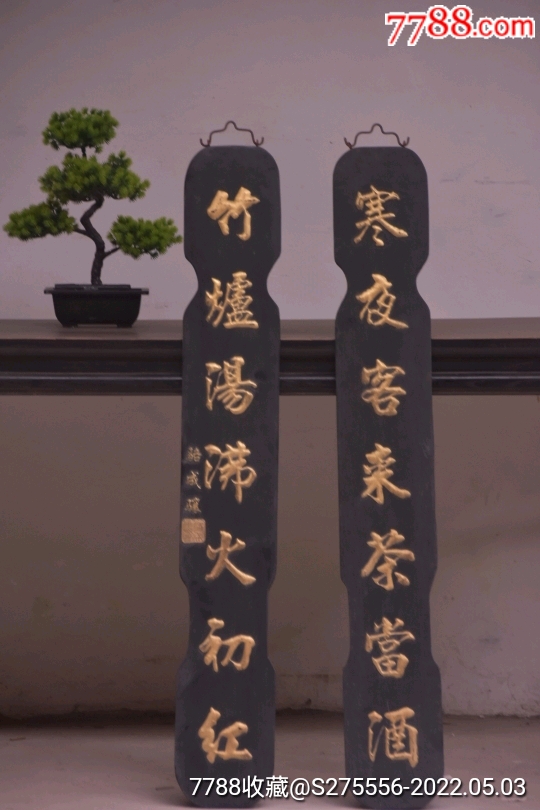 7788.com
寒夜客来茶當酒
竹爐湯沸火初紅
7788收藏@S275556-2022.05.03